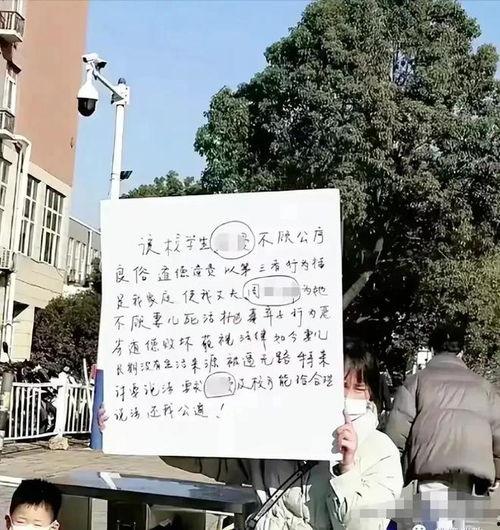 该校学生 不顾公序
良俗 道德 以第三者行为插
足我家庭 使我丈夫 周 为她
不顾妻儿死活抛妻弃子行为恶
劣道德败坏 藐视法律 如今妻儿
长期没有生活来源 被逼无路 特来
讨要说法 要求 及校方能给合理
说法还我公道！